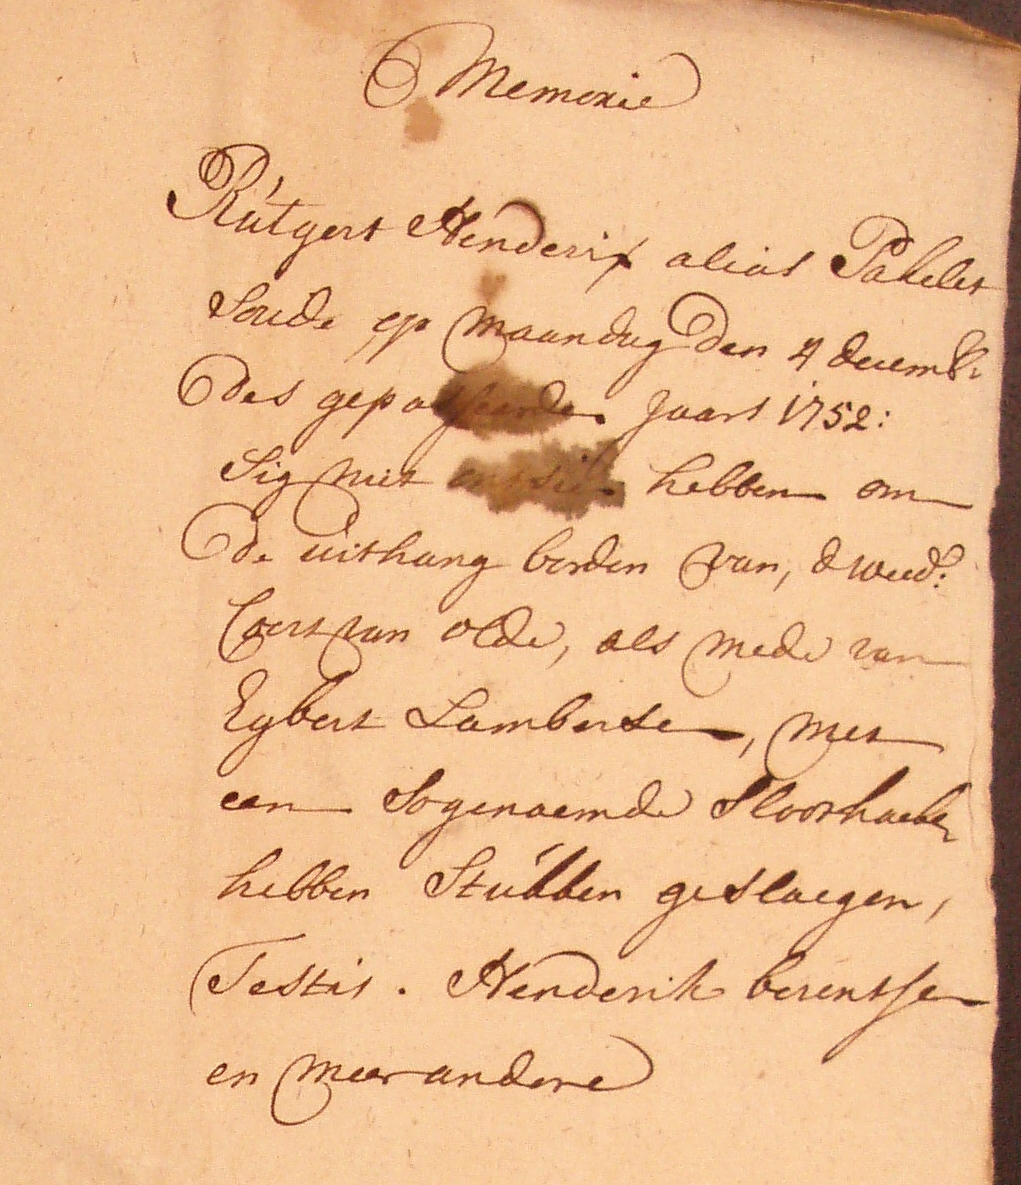 Memorie
Rútgert Henderix alias Pakelet
Soude op maandag den 4 decemb:
des gepasseerde Jaars 1752:
Sig niet ontsien hebben om
de uithang borden van, d weed:
Coert van olde, als mede van
Egbert Lambertse, met
een Sogenaemde Sloothaeke
hebben Stúkken geslaegen,
Testis. Henderik berentsen
en meer andere